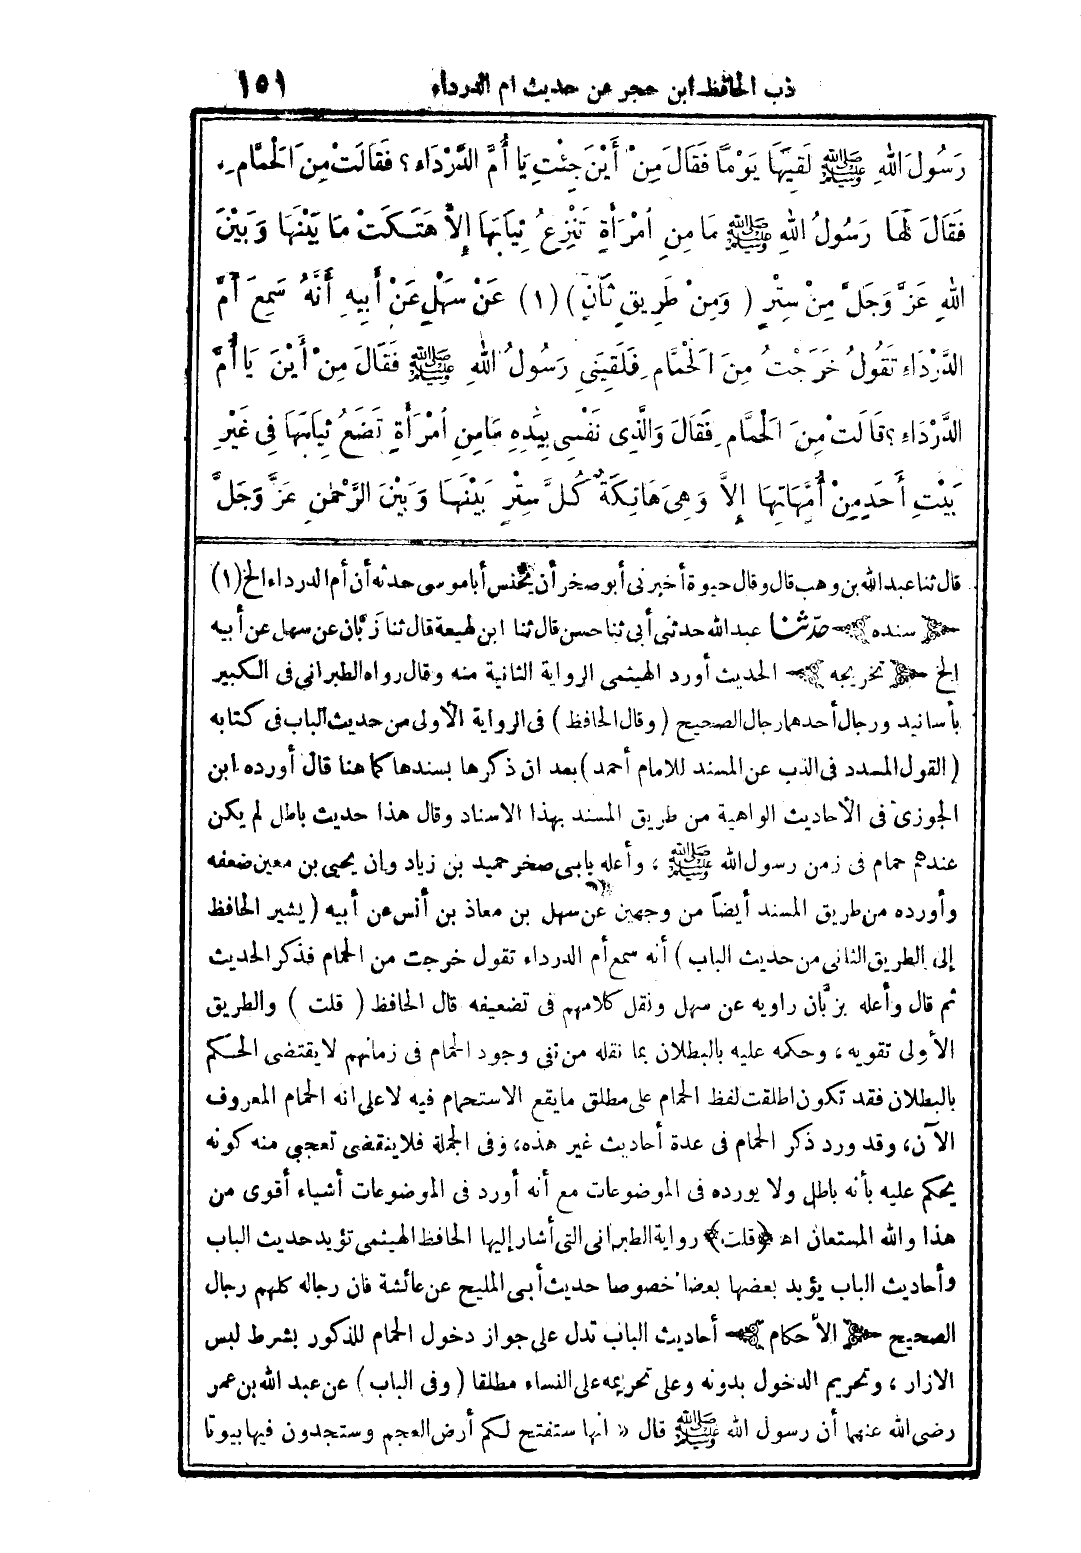 ذب الحافظ ابن حجر عن حديث ام الدرداء ١٥١
رَسُولَ اللهِ ﷺ لَقِيَهَا يَوْمًا فَقَالَ مِنْ أَيْنَ جِئْتِ يَا أُمَّ الدَّرْدَاءِ؟ فَقَالَتْ مِنَ الْحَمَّامِ،
فَقَالَ لَهَا رَسُولُ اللهِ ﷺ مَا مِنِ امْرَأَةٍ تَنْزِعُ ثِيَابَهَا إِلاَّ هَتَكَتْ مَا بَيْنَهَا وَبَيْنَ
اللهِ عَزَّ وَجَلَّ مِنْ سِتْرٍ (وَمِنْ طَرِيقٍ ثَانٍ) (١) عَنْ سَهْلٍ عَنْ أَبِيهِ أَنَّهُ سَمِعَ أُمَّ
الدَّرْدَاءِ تَقُولُ خَرَجْتُ مِنَ الْحَمَّامِ فَلَقِيَنِي رَسُولُ اللهِ ﷺ فَقَالَ مِنْ أَيْنَ يَا أُمَّ
الدَّرْدَاءِ؟ قَالَتْ مِنَ الْحَمَّامِ فَقَالَ وَالَّذِى نَفْسِى بِيَدِهِ مَا مِنِ امْرَأَةٍ تَضَعُ ثِيَابَهَا فِى غَيْرِ
بَيْتِ أَحَدٍ مِنْ أُمَّهَاتِهَا إِلاَّ وَهِىَ هَاتِكَةٌ كُلَّ سِتْرٍ بَيْنَهَا وَبَيْنَ الرَّحْمٰنِ عَزَّ وَجَلَّ
قال ثنا عبد الله بن وهب قال وقال حيوة أخبرنى أبو صخر أن يحنس أبا موسى حدثه أن أم الدرداء الخ (١)
سنده حدثنا عبد الله حدثنى أبى ثنا حسن قال ثنا ابن لهيعة قال ثنا زبّان عن سهل عن أبيه
الخ تخريجه الحديث أورد الهيثمى الرواية الثانية منه وقال رواه الطبرانى فى الكبير
بأسانيد ورجال أحدها رجال الصحيح (وقال الحافظ) فى الرواية الأولى من حديث الباب فى كتابه
(القول المسدد فى الذب عن المسند للامام أحمد) بعد ان ذكرها بسندها كما هنا قال أورده ابن
الجوزى فى الأحاديث الواهية من طريق المسند بهذا الاسناد وقال هذا حديث باطل لم يكن
عندهم حمام فى زمن رسول الله ﷺ، وأعله بابى صخر حميد بن زياد وان يحيى بن معين ضعفه
وأورده من طريق المسند أيضاً من وجهين عن سهل بن معاذ بن أنس عن أبيه (يشير الحافظ
إلى الطريق الثانى من حديث الباب) أنه سمع أم الدرداء تقول خرجت من الحمام فذكر الحديث
ثم قال وأعله بزبّان راويه عن سهل ونقل كلامهم فى تضعيفه قال الحافظ (قلت) والطريق
الأولى تقويه، وحكمه عليه بالبطلان بما نقله من نفى وجود الحمام فى زمانهم لا يقتضى الحكم
بالبطلان فقد تكون اطلقت لفظ الحمام على مطلق ما يقع الاستحمام فيه لا على انه الحمام المعروف
الآن، وقد ورد ذكر الحمام فى عدة أحاديث غير هذه، وفى الجملة فلا ينقضى تعجبى منه كونه
يحكم عليه بأنه باطل ولا يورده فى الموضوعات مع أنه أورد فى الموضوعات أشياء أقوى من
هذا والله المستعان اه ﴿قلت﴾ رواية الطبرانى التى أشار إليها الحافظ الهيثمى تؤيد حديث الباب
وأحاديث الباب يؤيد بعضها بعضا خصوصا حديث أبى المليح عن عائشة فان رجاله كلهم رجال
الصحيح الأحكام أحاديث الباب تدل على جواز دخول الحمام للذكور بشرط لبس
الازار، وتحريم الدخول بدونه وعلى تحريمه على النساء مطلقا (وفى الباب) عن عبد الله بن عمر
رضى الله عنهما أن رسول الله ﷺ قال « انها ستفتح لكم أرض العجم وستجدون فيها بيوتا